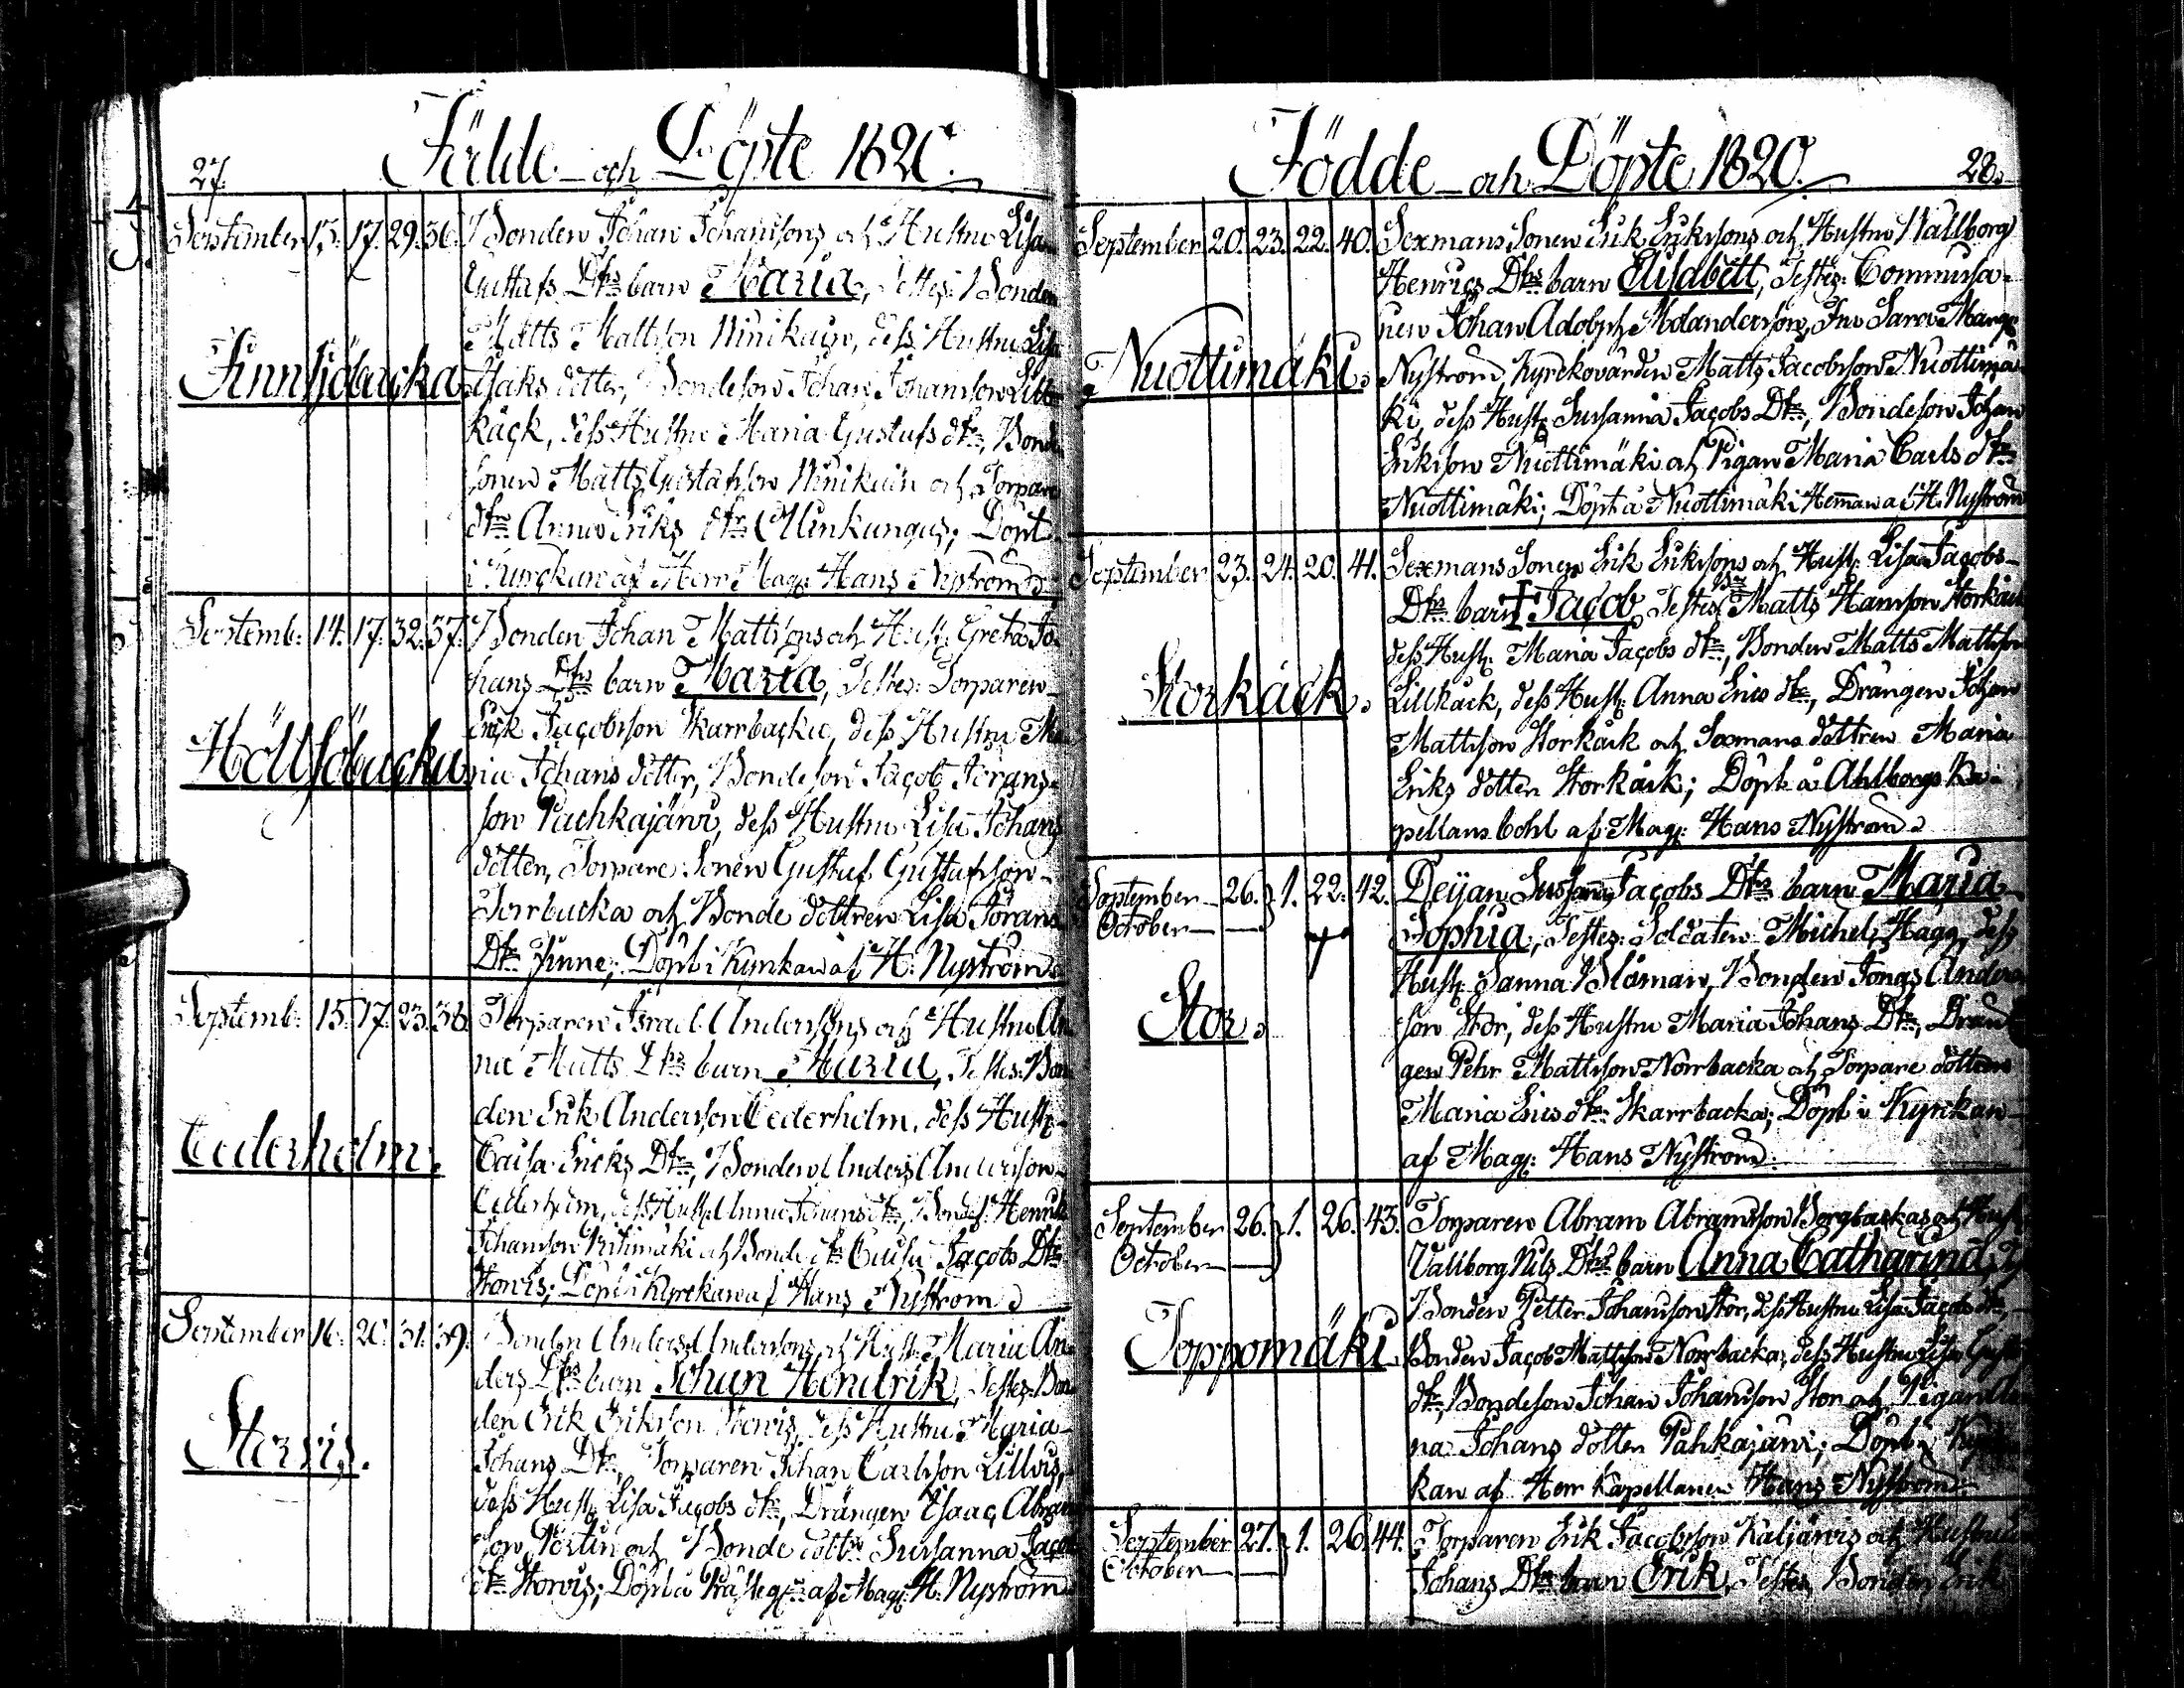 27.
Födde och Döpte 1820.
September 13. 17. 29. 36. Bonden Johan Johansons och Hustru Lisa
Gustafs Dtrs barn Maria, Testes: Bonden
Matts Mattson Ninikain, dess Hustru Lisa
Finnsjöbacka Isaks dotter, Bondeson Johan Johanson Lill
käck, dess Hustru Maria Gustafs dtr, Bonde
sonen Matts Gustafson Ninikain och Torpare
dtr Anna Eriks dtr; Döpt
i Kyrckan af Herr Mag: Hans Nyström
Septemb: 14. 17. 32. 37. Bonden Johan Mattsons och Hust: Greta Jo-
hans Dtrs barn Maria, Testes: Torparen
Erik Jacobsson Skarrbacka, dess Hustru Ma
Höllsöbacka ria Johans dotter, Bondeson Jacob Jörans-
son Pachkajärvi, dess Hustru Lisa Johans
dotter, Torpare Sonen Gustaf Gustafson
Torrbacka och Bonde dottren Lisa Jörans
Dtr Finne; Döpt i Kyrckan af H: Nyström
Septemb: 15. 17. 23. 38. Torparen Israel Andersons och Hustru An
na Matts Dtrs barn Maria, Testes: Bon
den Erik Anderson Cederholm, dess Hust:
Cederholm. Caisa Ericks Dtr, Bonden Anders Anderson
Cederholm, dess Hust: Anna Johans dtr, Bondes: Henrik
Johanson Riitimäki och Bonde dtr Caisa Jacobs Dtr
Storvis; Döpt i Kyrckan af Hans Nyström
September 16. 20. 31. 39. Bonden Anders Andersons och Hust: Maria An
ders Dtrs barn Johan Hendrik, Testes: Bon
den Erik Erikson Storvis, dess Hustru Maria
Storvis. Johans Dtr, Torparen Johan Carlsson Lillvis,
dess Hust: Lisa Jacobs dtr, Drängen Isaac Abram
son Portin och Bonde dottr: Sussanna Jacobs
dtr Storvis; Döpt å Prästeg: af Mag: H: Nyström
Födde och Döpte 1820. 28.
September 20. 23. 22. 40. Sexmans Sonen Erik Eriksons och Hustru Wallborg
Henrics Dtrs barn Elisabett, Testes: Commissa-
rien Johan Adolph Molanderson, Fru Sara Marg:
Nuottimäki. Nyström, Kyrckovärden Matts Jacobsson Nuottimä
ki, dess Hust: Sussanna Jacobs Dtr, Bondeson Johan
Erikson Nuottimäki och Pigan Maria Carls dtr
Nuottimäki; Döpt å Nuottimäki Heman af H. Nyström
September 23. 24. 20. 41. Sexmans Sonen Erik Eriksons och Hust: Lisa Jacobs
Dtrs barn Jacob, Testes: Matts Hanson Storkäck
dess Hust: Maria Jacobs dtr, Bonden Matts Mattson
Storkäck. Lillkäck, dess Hust: Anna Erics dtr, Drängen Johan
Mattson Storkäck och Sexmans dottren Maria
Eriks dotter Storkäck; Döpt å Ahlborgs Ka-
pellans bohl af Mag: Hans Nyström
September 26. 1. 22. 42. Deijan Sussanna Jacobs Dtrs barn Maria
October Sophia, Testes: Soldaten Michel Hagg, dess
Hust: Sanna Blåman, Bonden Jonas Anders
Stor. son Stor, dess Hustru Maria Johans Dtr, Drän
gen Pehr Mattson Norrbacka och Torpare dottren
Maria Erics dtr Skarrbacka; Döpt i Kyrckan
af Mag: Hans Nyström.
September 26. 1. 26. 43. Torparen Abram Abramson Borgbackas och Hust
October Valborg Nils Dtrs barn Anna Catharina, T
Bonden Petter Johanson Stor, dess Hustru Lisa Jacobs dtr,
Toppomäki Bonden Jacob Mattson Norrbacka, dess Hustru Lisa Gustafs
dtr, Bondeson Johan Johanson Stor och Pigan An
na Johans dotter Pahkajärvi; Döpt i Kyrc
kan af Herr Kapellanen Hans Nyström.
September 27. 1. 26. 44. Torparen Erik Jacobsson Kaljärvis och Hustru
October Johans Dtrs barn Erik, Testes Bonden Erik